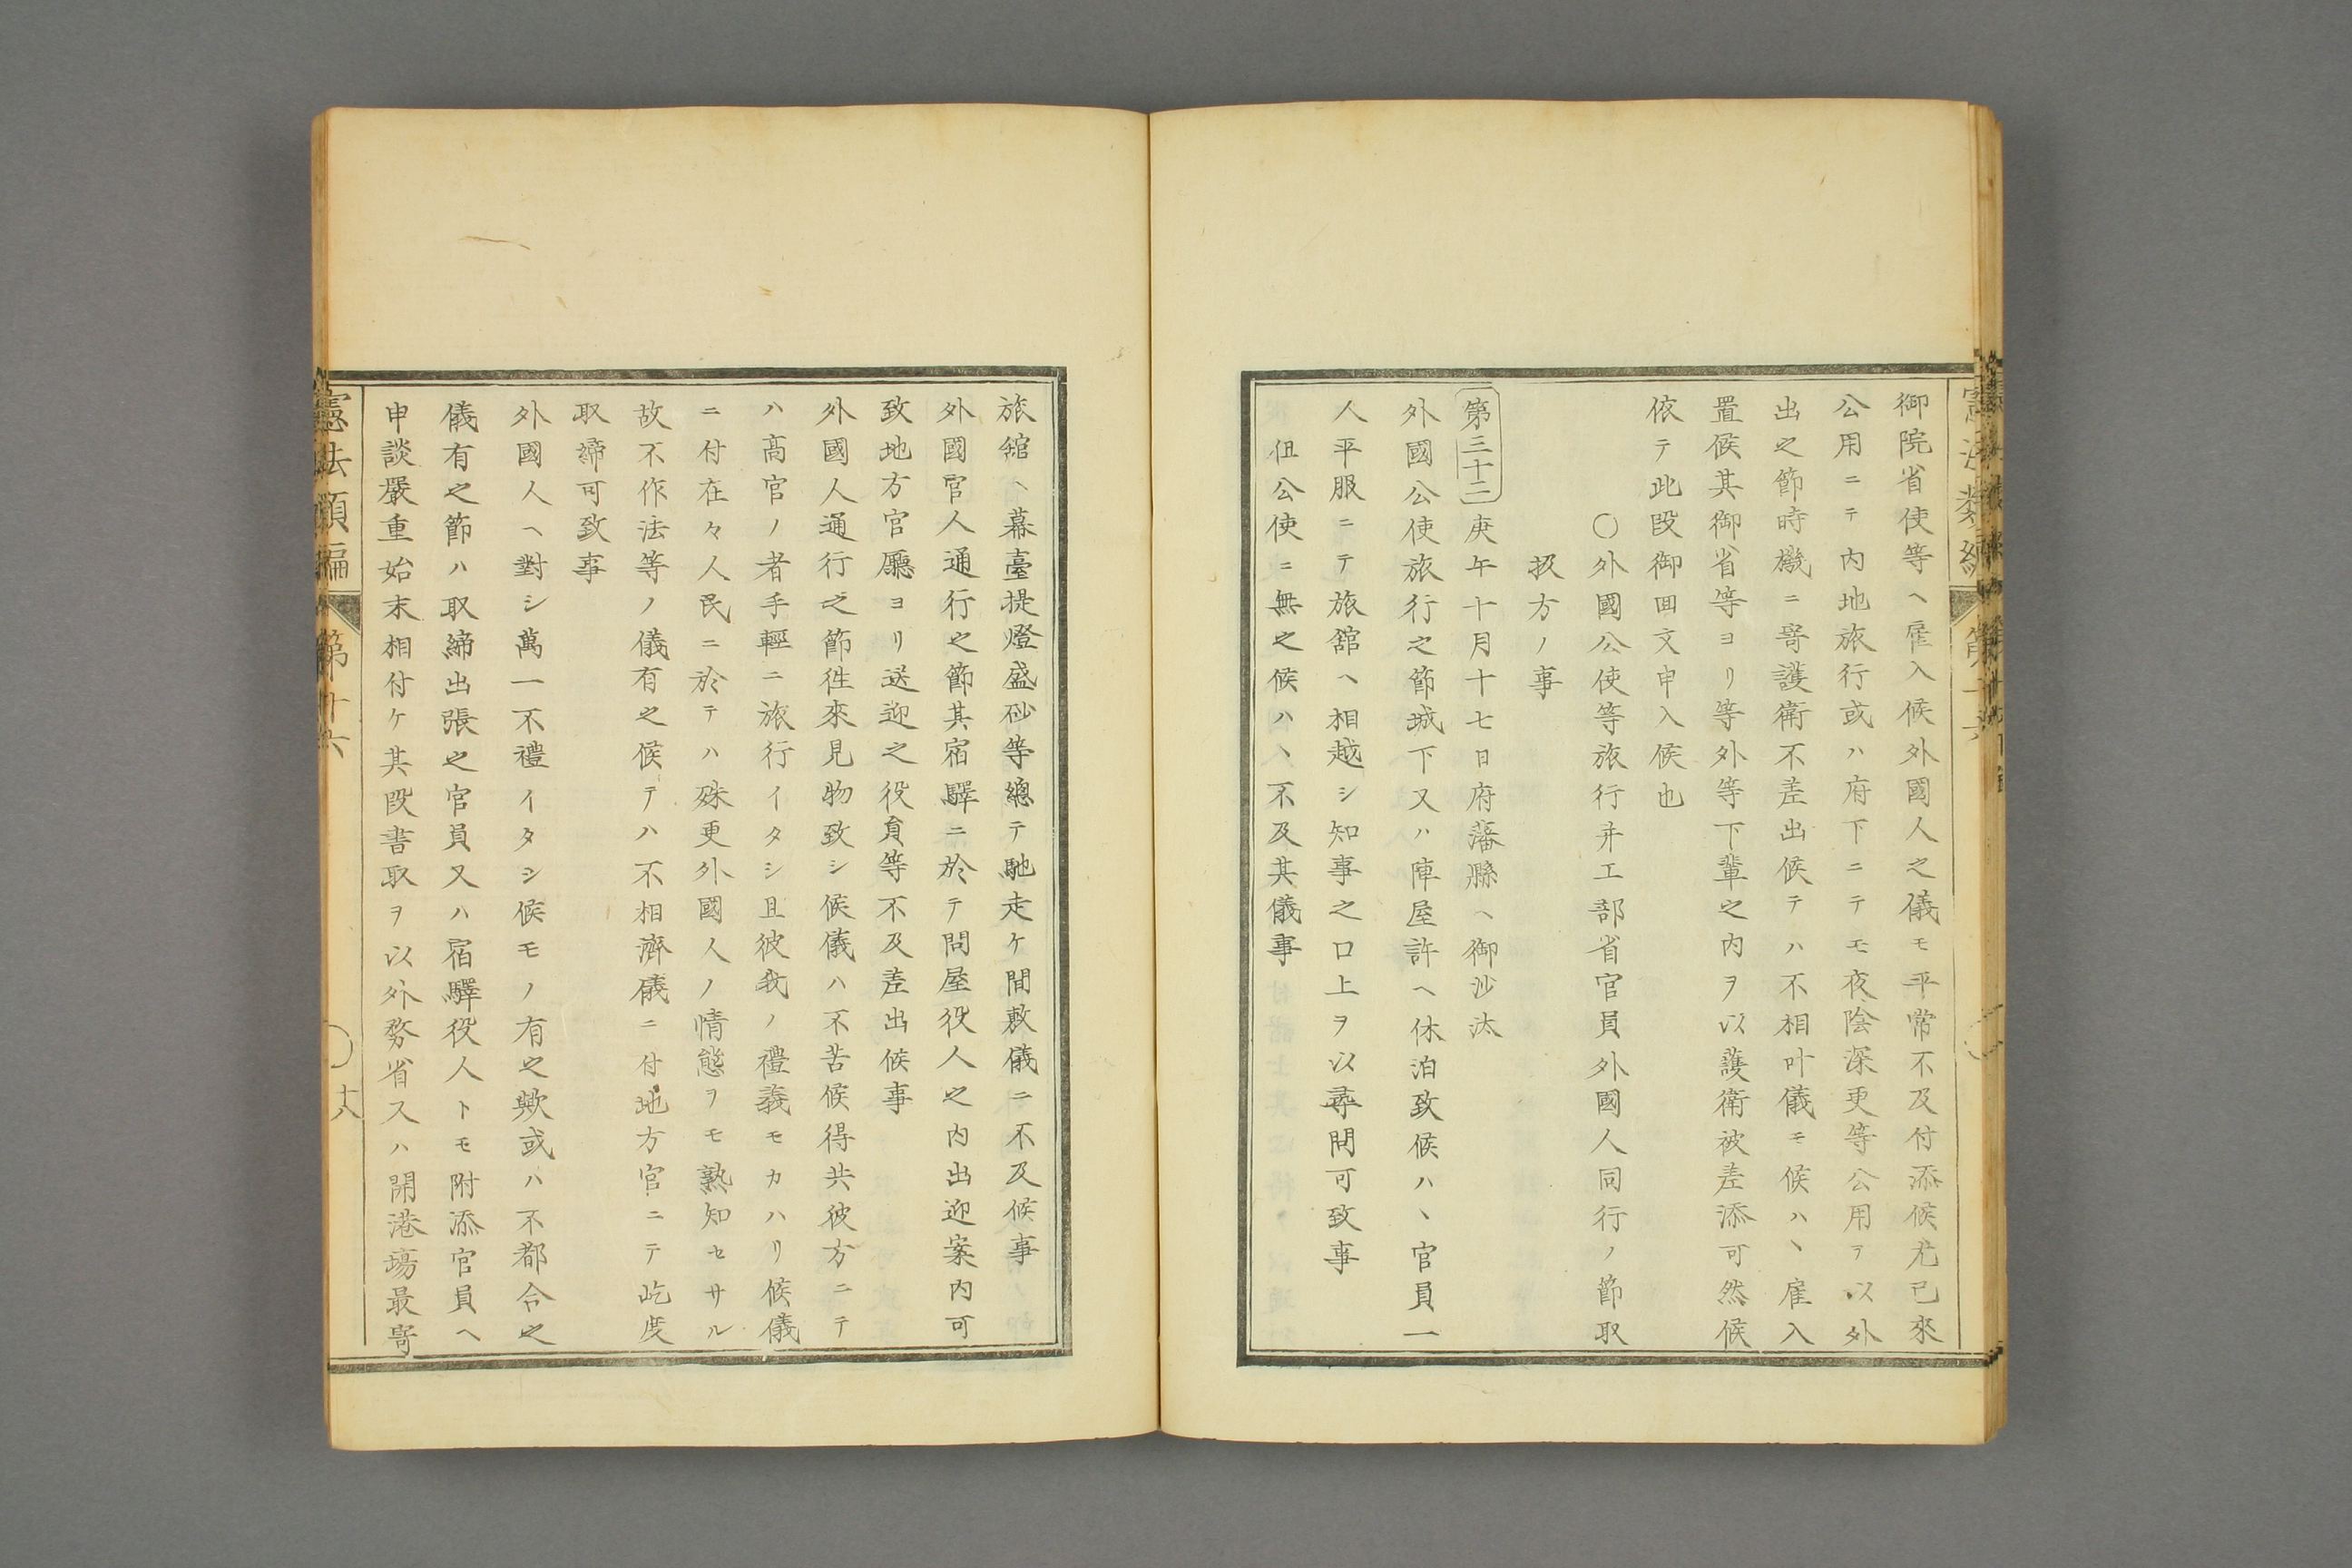 御院省使等ヘ雇入候外國人之儀モ平常不及付添候尤已來
公用ニテ内地旅行或ハ府下ニテモ夜陰深更等公用ヲ以外
出之節時機ニ寄護衛不差出候テハ不相叶儀モ候ハヽ雇入
置候其御省等ヨリ等外等下輩之内ヲ以護衛被差添可然候
依テ此段御囬文申入候也
〇外國公使等旅行并工部省官員外國人同行ノ節取
扱方ノ事
第三十二庚午十月十七日府藩縣ヘ御沙汰
外國公使旅行之節城下又ハ陣屋許ヘ休泊致候ハヽ官員一
人平服ニテ旅舘ヘ相越シ知事之口上ヲ以尋問可致事
但公使ニ無之候ハヽ不及其儀事
旅舘ヘ幕臺提燈盛砂等總テ馳走ケ間敷儀ニ不及候事
外國官人通行之節其宿驛ニ於テ問屋役人之内出迎案内可
致地方官廳ヨリ送迎之役員等不及差出候事
外國人通行之節徃來見物致シ候儀ハ不苦候得共彼方ニテ
ハ高官ノ者手輕ニ旅行イタシ且彼我ノ禮義モカハリ候儀
ニ付在々人民ニ於テハ殊更外國人ノ情態ヲモ熟知セサル
故不作法等ノ儀有之候テハ不相濟儀ニ付地方官ニテ屹度
取締可致事
外國人ヘ對シ萬一不禮イタシ候モノ有之歟或ハ不都合之
儀有之節ハ取締出張之官員又ハ宿驛役人トモ附添官員ヘ
申談嚴重始末相付ケ其段書取ヲ以外務省又ハ開港場最寄
憲法類編
第十六
〇十八